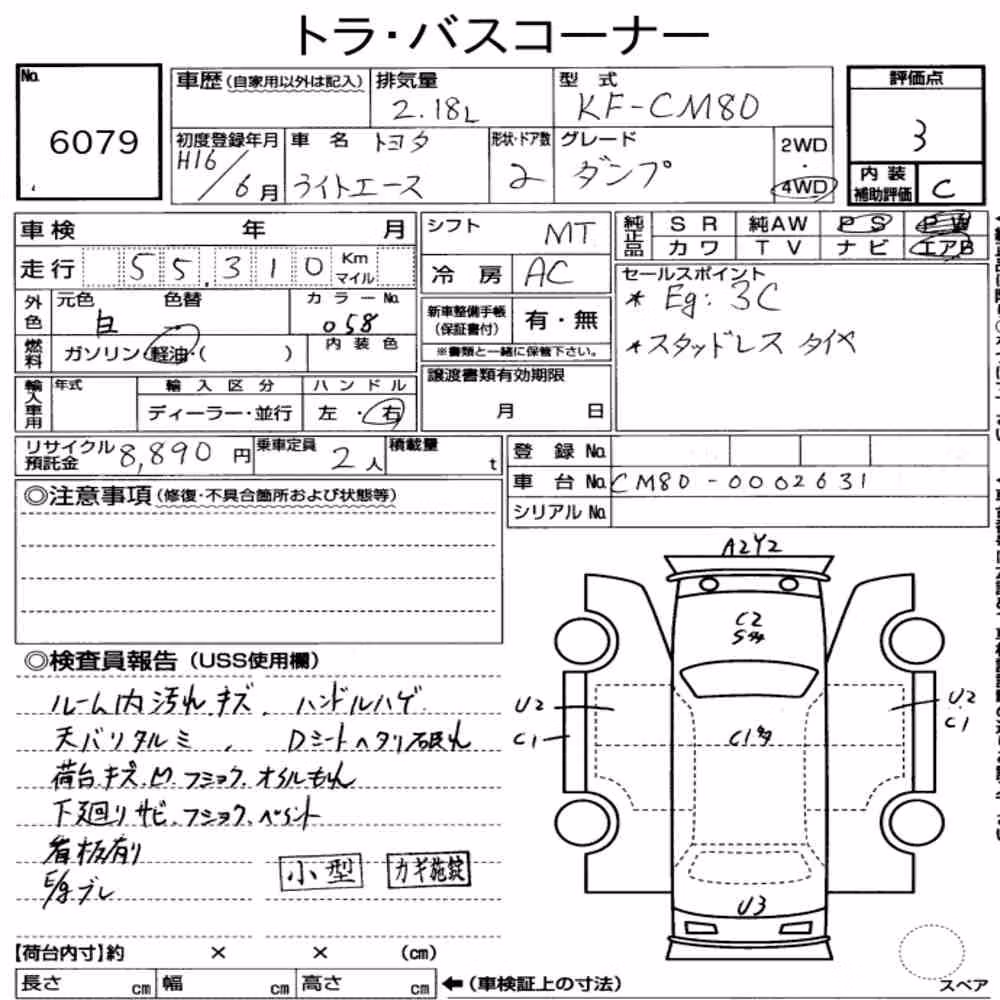 トラ・バスコーナー
No.
6079
車歴(自家用以外は記入)
排気量
2.18L
型式
KF-CM80
評価点
3
初度登録年月
H16/6月
車名 トヨタ
ライトエース
形状・ドア数
2
グレード
ダンプ
2WD
・
4WD
内装
補助評価
C
車検 年 月
シフト
MT
純正品
SR 純AW PS PW
カワ TV ナビ エアB
走行 55,310 Km
マイル
冷房 AC
セールスポイント
* Eg: 3C
*スタッドレス タイヤ
外色
元色 色替
白
カラーNo.
058
新車整備手帳
(保証書付)
有・無
※書類と一緒に保管下さい。
燃料
ガソリン・軽油・( )
内装色
輸入車用
年式
輸入区分
ハンドル
ディーラー・並行
左・右
譲渡書類有効期限
月 日
リサイクル
預託金
8,890 円
乗車定員
2人
積載量
t
登録No.
車台No. CM80-0002631
シリアルNo.
◎注意事項(修復・不具合箇所および状態等)
◎検査員報告(USS使用欄)
ルーム内汚れ.キズ、ハンドルハゲ
天バリタルミ、Dシートヘタリ破れ
荷台.キズ.凹.フショク.オイルもれ
下廻リサビ.フショク.ペイント
看板有り
E/gブレ
小型
カギ施錠
A2Y2
C2
U2
C1
U2
C1
C1
U3
【荷台内寸】約 × × (cm)
長さ cm 幅 cm 高さ cm
←(車検証上の寸法)
スペア